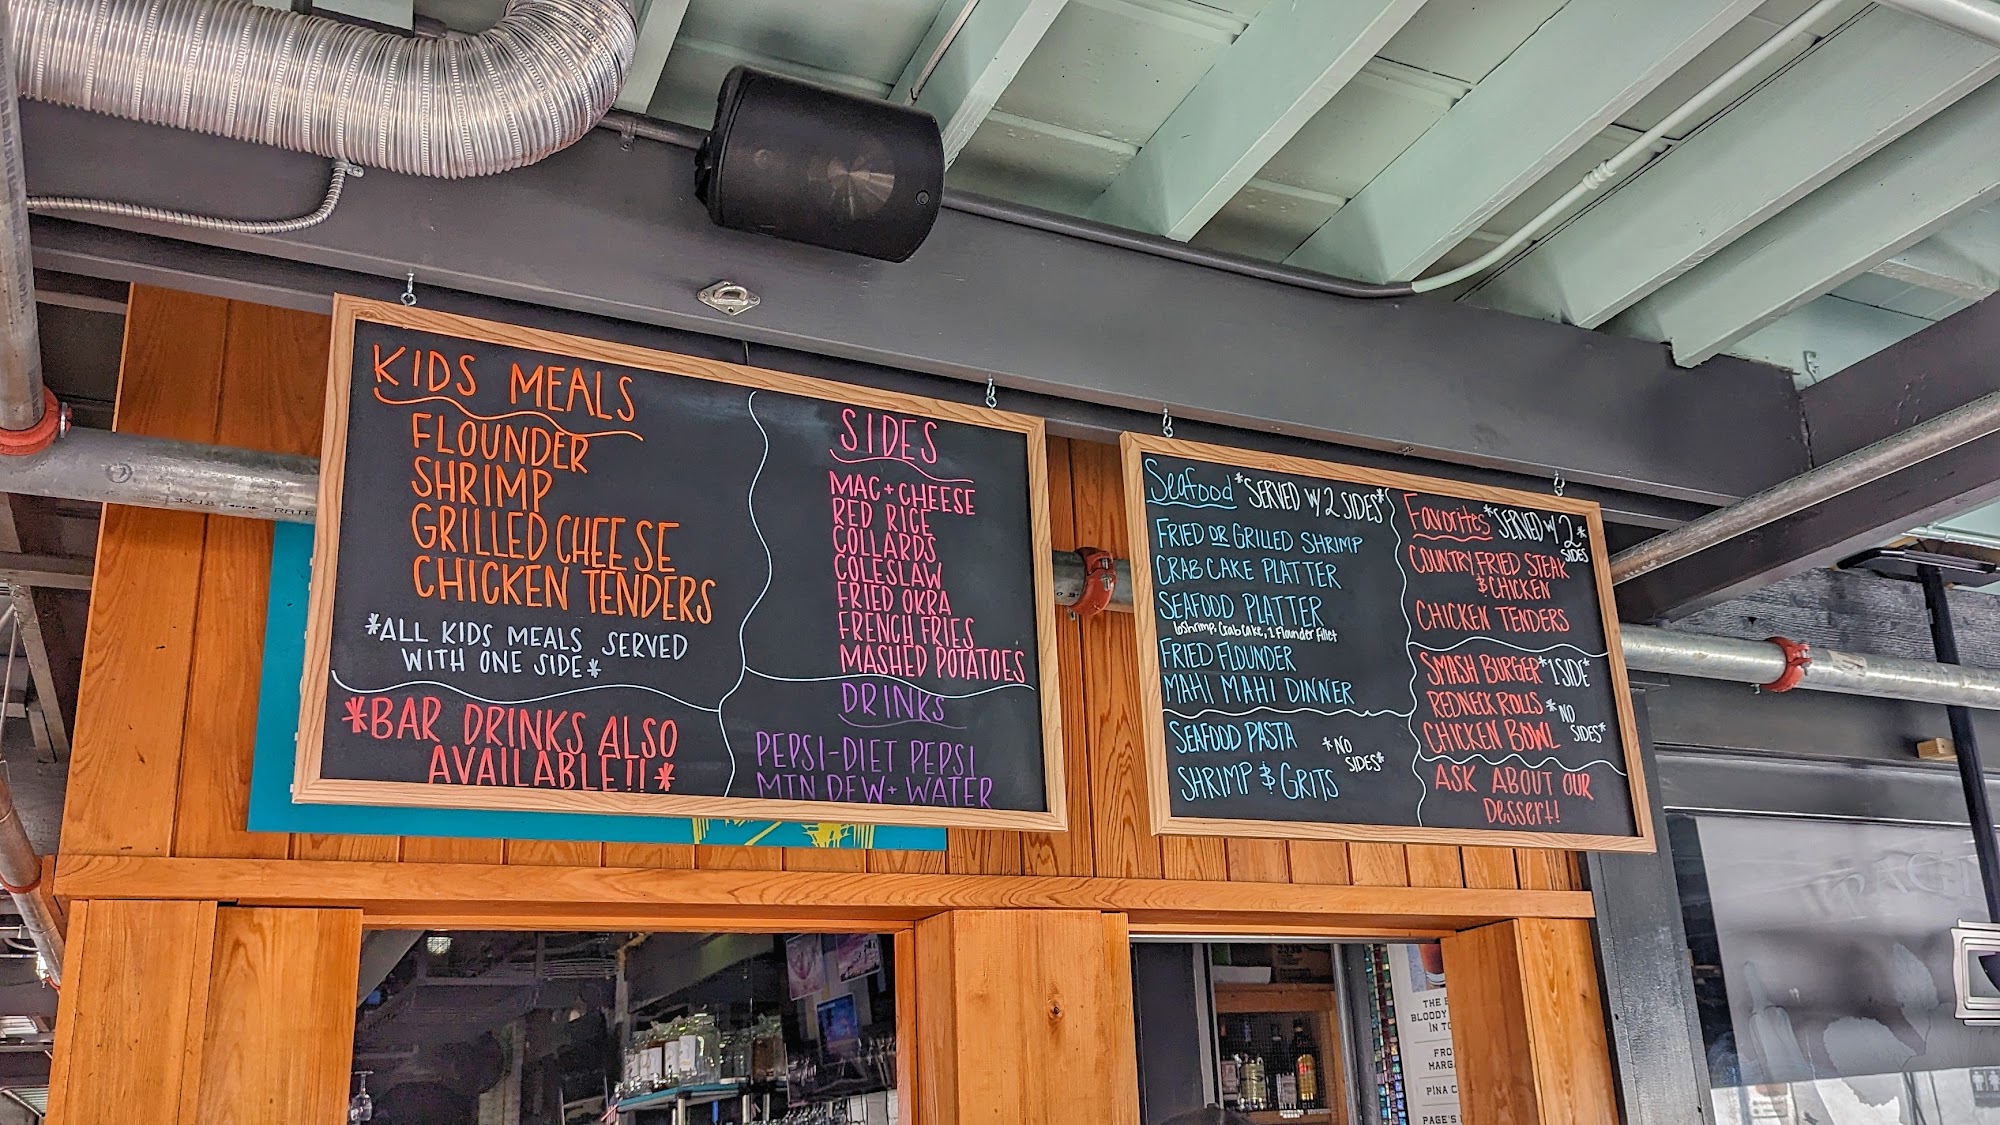 KIDS MEALS
FLOUNDER
SHRIMP
GRILLED CHEESE
CHICKEN TENDERS
*ALL KIDS MEALS SERVED
WITH ONE SIDE*
*BAR DRINKS ALSO
AVAILABLE!!*
SIDES
MAC + CHEESE
RED RICE
COLLARDS
COLESLAW
FRIED OKRA
FRENCH FRIES
MASHED POTATOES
DRINKS
PEPSI-DIET PEPSI
MTN DEW + WATER
Seafood *SERVED W/ 2 SIDES*
FRIED OR GRILLED SHRIMP
CRAB CAKE PLATTER
SEAFOOD PLATTER
6 Shrimp, Crab Cake, 1 Flounder Fillet
FRIED FLOUNDER
MAHI MAHI DINNER
SEAFOOD PASTA
SHRIMP & GRITS
*NO
SIDES*
Favorites *SERVED W/ 2*
SIDES
COUNTRY FRIED STEAK
& CHICKEN
CHICKEN TENDERS
SMASH BURGER *1 SIDE*
REDNECK ROLLS
CHICKEN BOWL
*NO
SIDES*
ASK ABOUT OUR
Dessert!
THE
BLOODY
IN TO
FRO
MARG
PINA C
PAGE'S